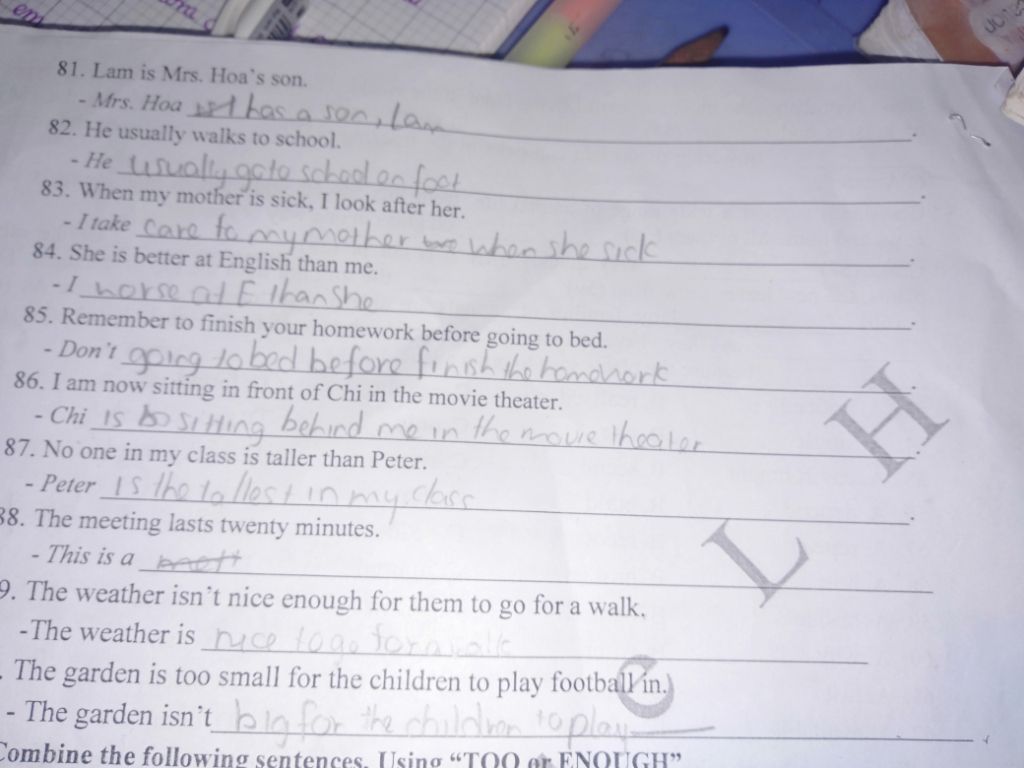 em
81. Lam is Mrs. Hoa's son.
- Mrs. Hoa has a son, Lam
82. He usually walks to school.
- He usually go to school on foot.
83. When my mother is sick, I look after her.
- I take care to my mother when she sick.
84. She is better at English than me.
- I worse at E than she.
85. Remember to finish your homework before going to bed.
- Don't going to bed before finish the homework.
86. I am now sitting in front of Chi in the movie theater.
- Chi is sitting behind me in the movie theater.
87. No one in my class is taller than Peter.
- Peter is the tallest in my class.
88. The meeting lasts twenty minutes.
- This is a
9. The weather isn't nice enough for them to go for a walk.
-The weather is nice to go for a walk
. The garden is too small for the children to play football in.)
- The garden isn't big for the children to play
Combine the following sentences. Using "TOO or ENOUGH"
C L H